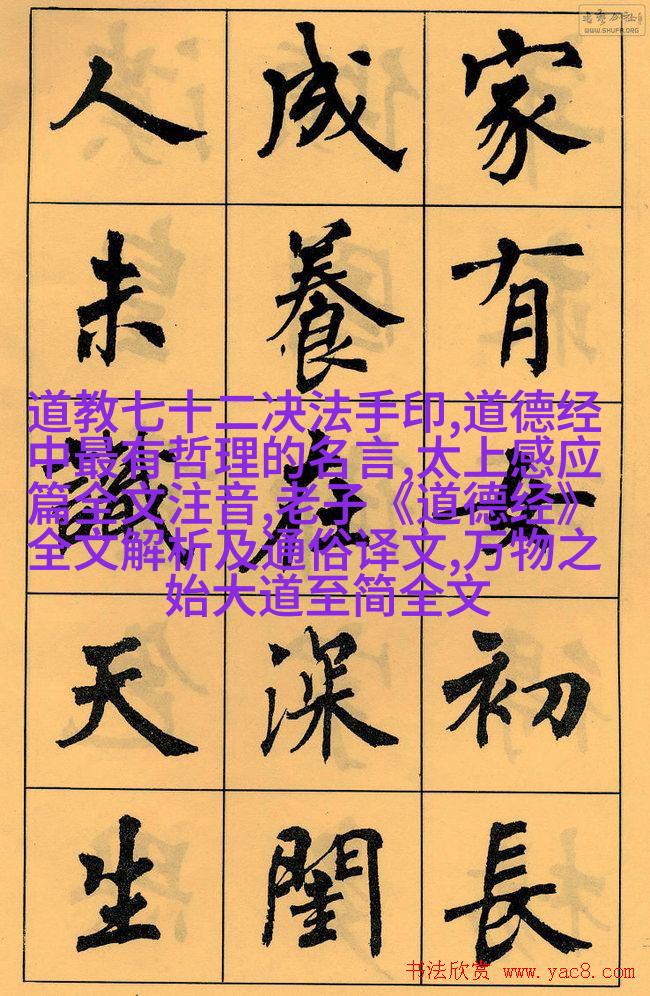 WWW.SHUFA.ORG
家有女初長
成養在深閨
人未識天生
道教七十二决法手印,道德经
中最有哲理的名言,太上感应
篇全文注音,老子《道德经》
全文解析及通俗译文,万物之
始大道至简全文
书法欣赏 www.yac8.com